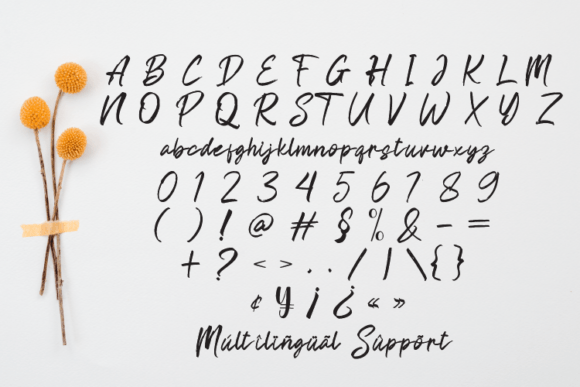 A B C D E F G H I J K L M
N O P Q R S T U V W X Y Z
abcdefghijklmnopqrstuvwxyz
0 1 2 3 4 5 6 7 8 9
( ) ! @ # § % & - =
+ ? < > . . / | \ { }
¢ ¥ ¡ ¿ « »
Múltîlïñgùäl Sûppõrt